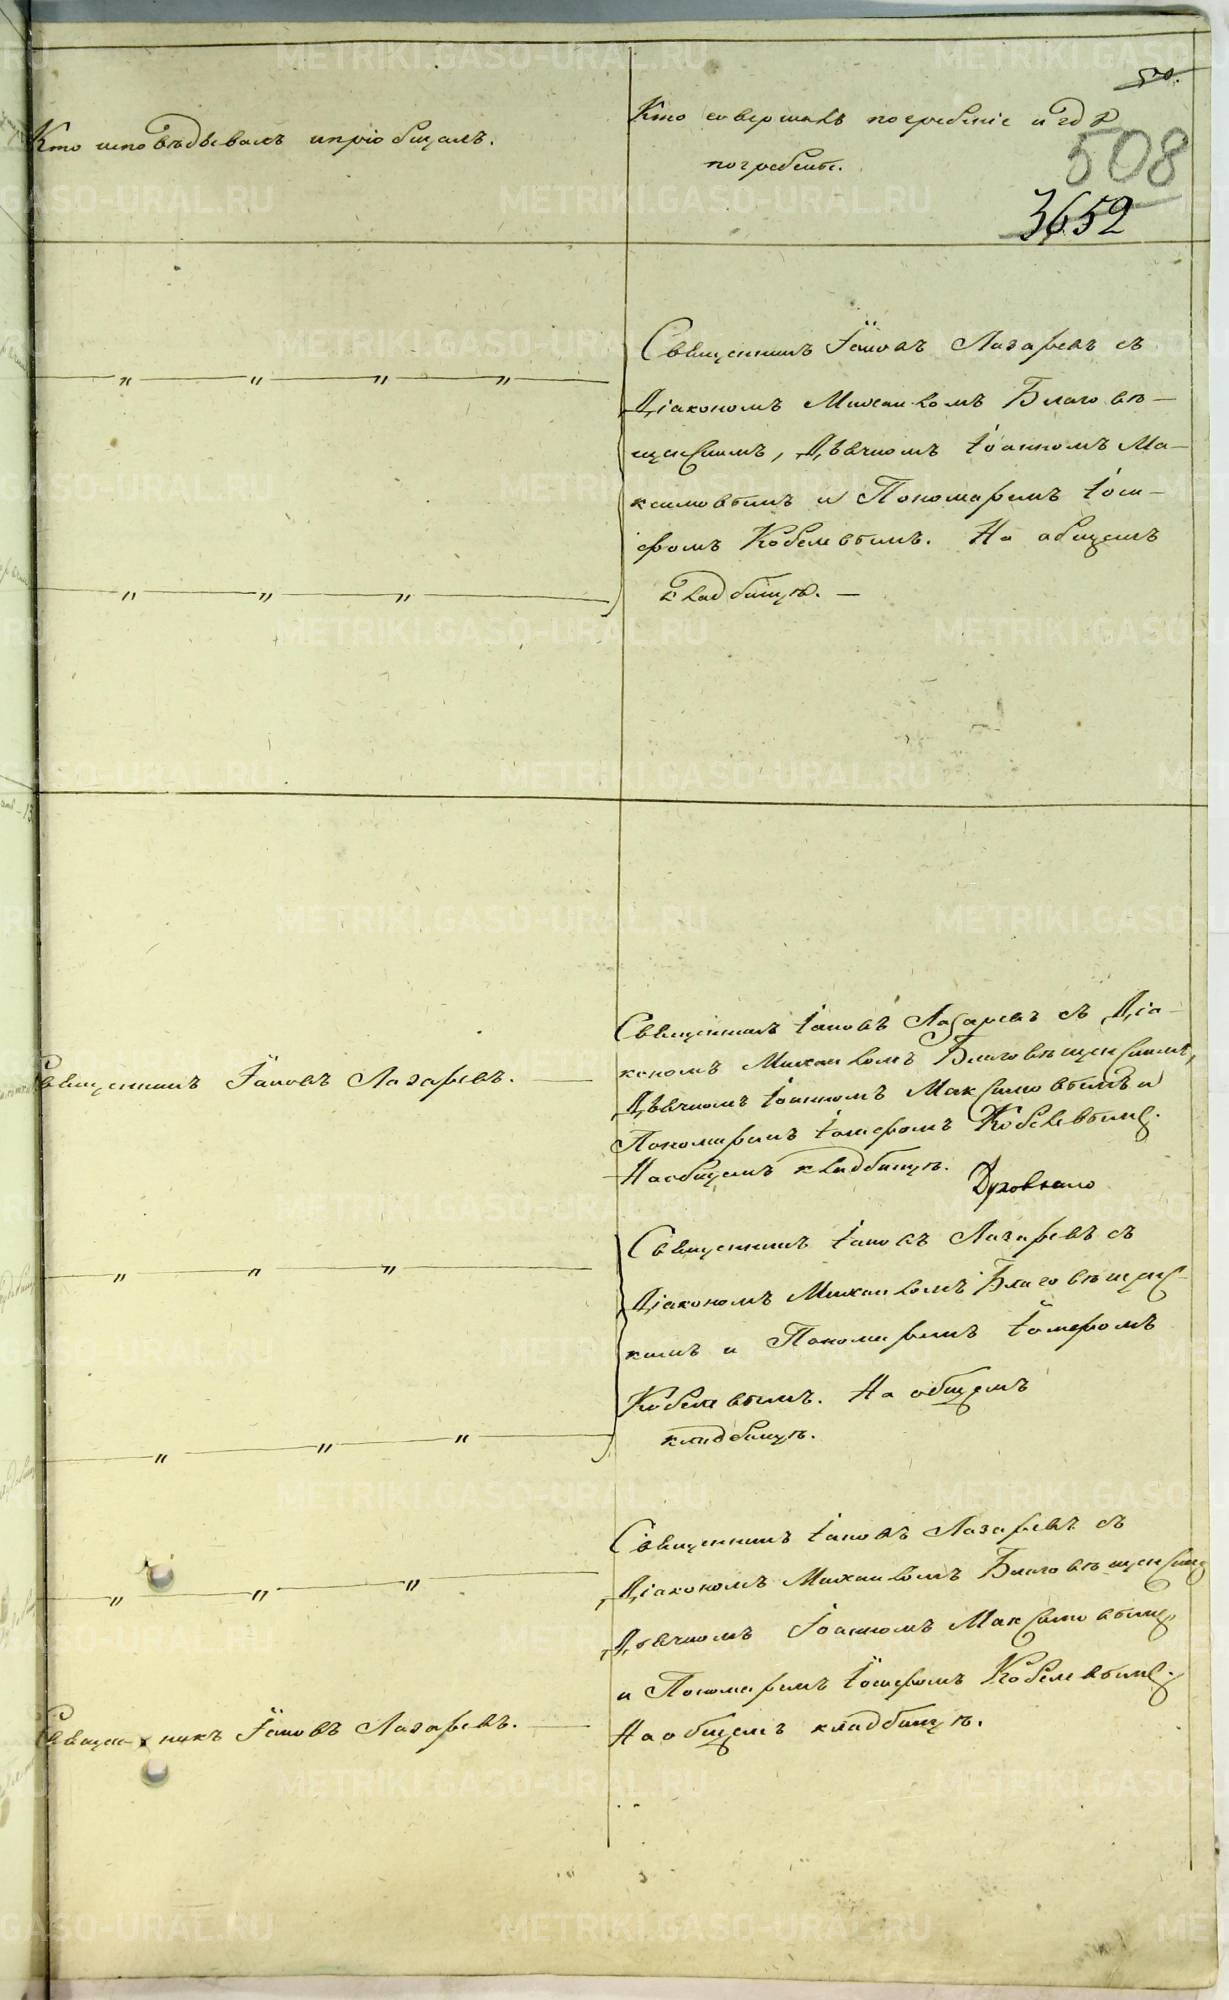 50.
508
3652
Кто исповѣдывалъ и пріобщалъ.
Кто совершалъ погребеніе и гдѣ
погребенъ.
Священникъ Іаковъ Лазаревъ съ
Діакономъ Михаиломъ Благовѣ-
щенскимъ, Дьячкомъ Іоанномъ Ма-
ксимовымъ и Пономаремъ Іоси-
фомъ Кобелевымъ. На общемъ
кладбищѣ. —
Священникъ Іаковъ Лазаревъ.
Священникъ Іаковъ Лазаревъ съ Діа-
кономъ Михаиломъ Благовѣщенскимъ,
Дьячкомъ Іоанномъ Максимовымъ и
Пономаремъ Іосифомъ Кобелевымъ.
На общемъ кладбищѣ.
Духовнаго
Священникъ Іаковъ Лазаревъ съ
Діакономъ Михаиломъ Благовѣщенс-
кимъ и Пономаремъ Іосифомъ
Кобелевымъ. На общемъ
кладбищѣ.
Священникъ Іаковъ Лазаревъ съ
Діакономъ Михаиломъ Благовѣщенскимъ
Дьячкомъ Іоанномъ Максимовымъ
и Пономаремъ Іосифомъ Кобелевымъ.
На общемъ кладбищѣ.
Священникъ Іаковъ Лазаревъ.
METRIKI.GASO-URAL.RU